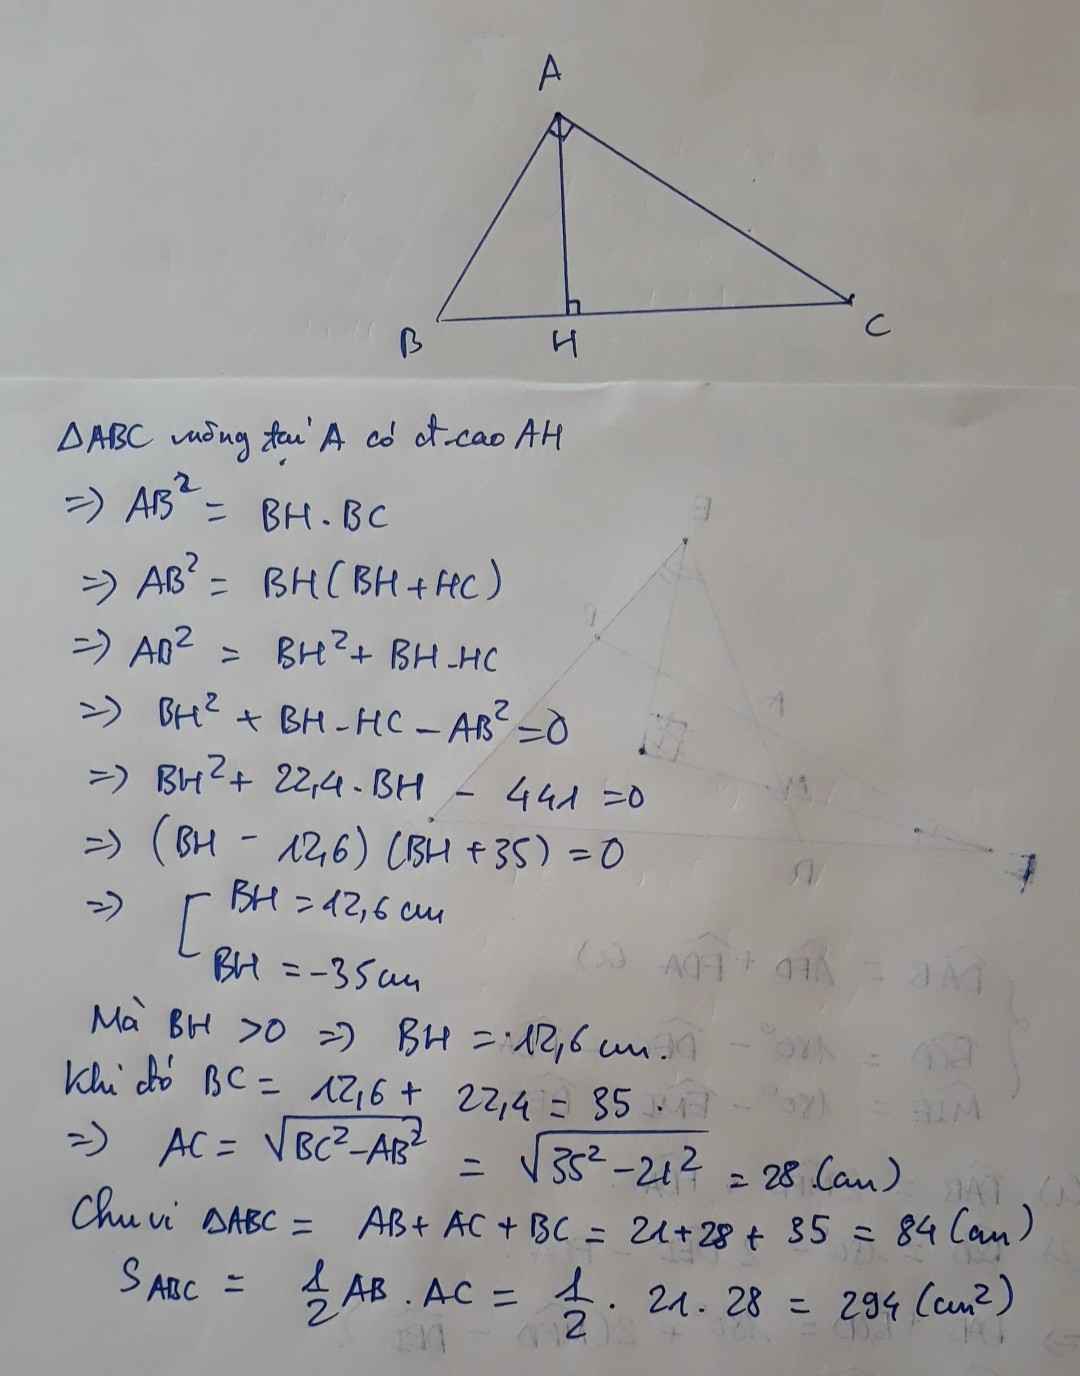 A
B
H
C
ΔABC vuông tại A có đt cao AH
=> AB² = BH . BC
=> AB² = BH(BH + HC)
=> AB² = BH² + BH . HC
=> BH² + BH . HC - AB² = 0
=> BH² + 22,4 . BH - 441 = 0
=> (BH - 12,6) (BH + 35) = 0
=> [ BH = 12,6 cm
BH = -35 cm
Mà BH > 0 => BH = 12,6 cm.
Khi đó BC = 12,6 + 22,4 = 35 .
=> AC = √BC² - AB² = √35² - 21² = 28 (cm)
Chu vi ΔABC = AB + AC + BC = 21 + 28 + 35 = 84 (cm)
S ABC = 1/2 AB . AC = 1/2 . 21 . 28 = 294 (cm²)